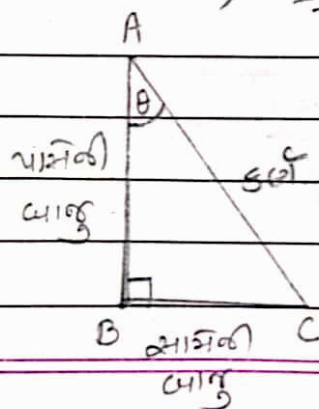 A
θ
પાસેની
બાજુ
કર્ણ
B
C
સામેની
બાજુ